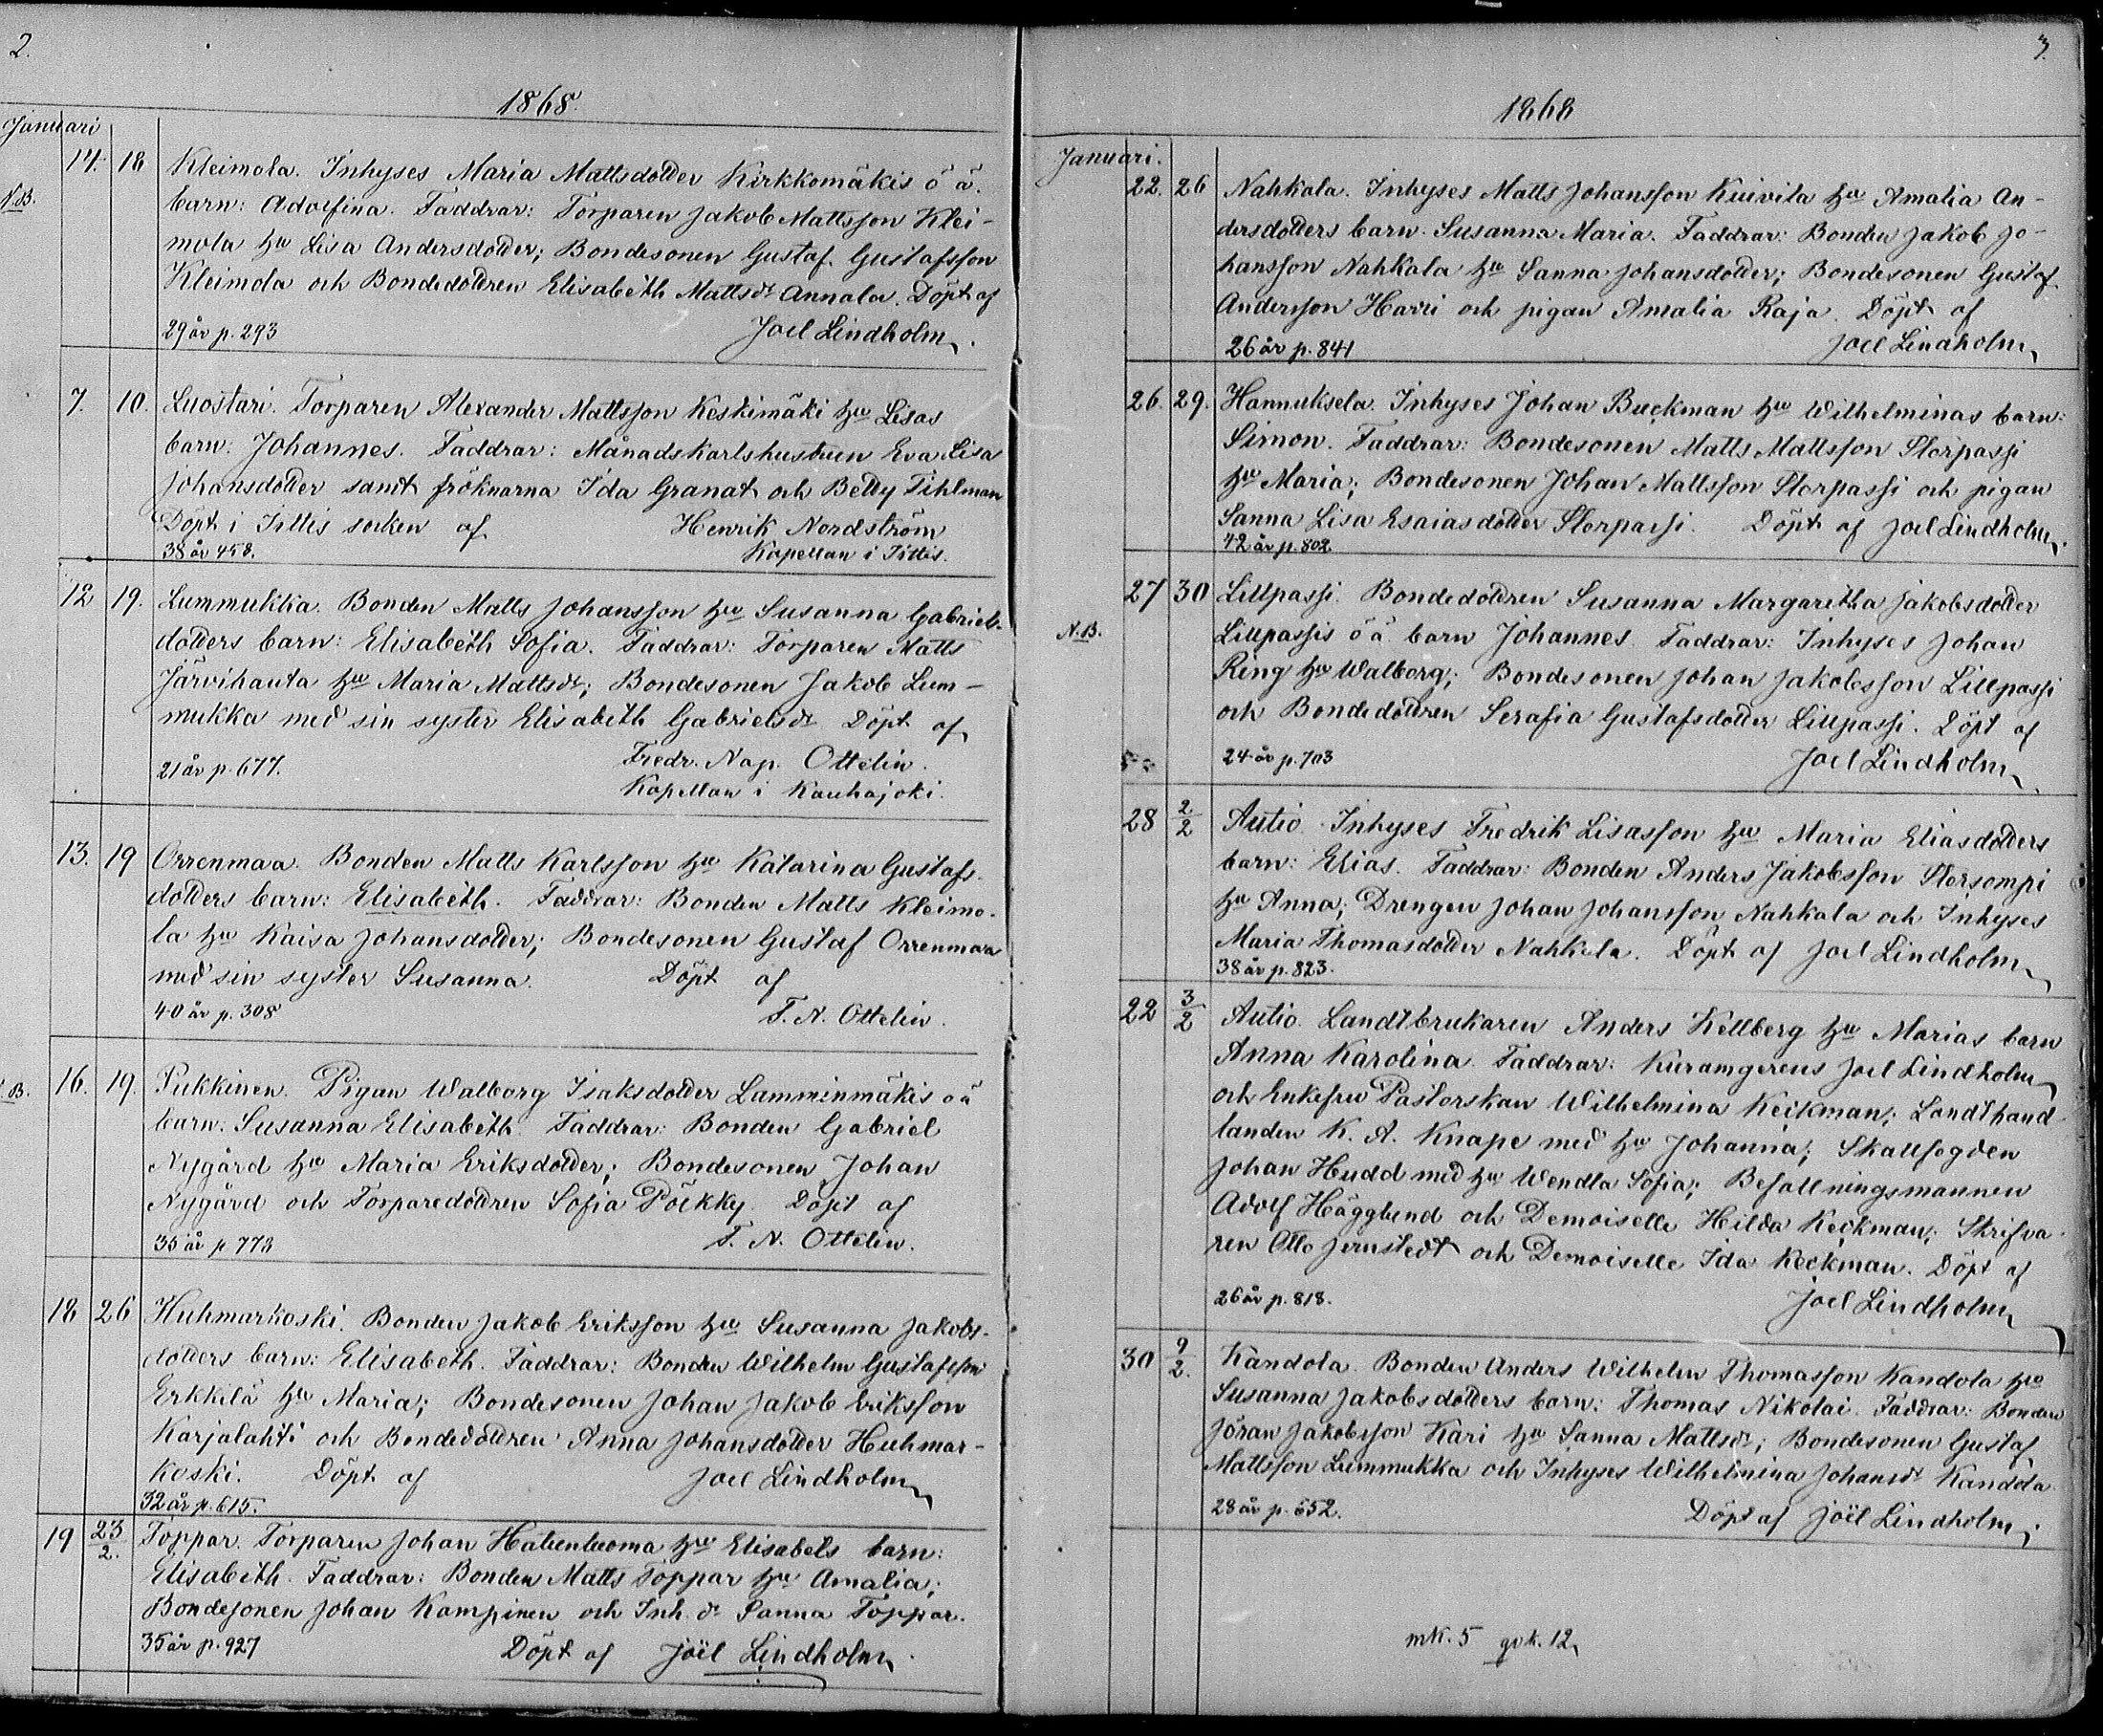 2.
1868.
Januari
14. 18 Kleimola. Inhyses Maria Mattsdotter Kirkkomäkis ö ä.
N.B. barn: Adolfina. Faddrar: Torparen Jakob Mattsson Klei-
mola hu Lisa Andersdotter; Bondesonen Gustaf Gustafsson
Kleimola och Bondedottren Elisabeth Mattsdr Annala. Döpt af
29 år p. 293 Joel Lindholm.
7. 10. Luostari. Torparen Alexander Mattsson Keskimäki hu Lisas
barn: Johannes. Faddrar: Månadskarlshustrun Eva Lisa
Johansdotter samt fröknarna Ida Granat och Betty Tihlman
Döpt i Jittis socken af Henrik Nordström
38 år 458. Kapellan i Jittis.
12 19. Lummukka. Bonden Matts Johansson hu Susanna Gabriels-
dotters barn: Elisabeth Sofia. Faddrar: Torparen Matts
Järvihauta hu Maria Mattsdr; Bondesonen Jakob Lum-
mukka med sin syster Elisabeth Gabrielsdr Döpt af
21 år p. 677. Fredr. Nap. Ottelin.
Kapellan i Kauhajoki.
13. 19 Orrenmaa. Bonden Matts Karlsson hu Katarina Gustafs-
dotters barn: Elisabeth. Faddrar: Bonden Matts Kleimo-
la hu Kaisa Johansdotter; Bondesonen Gustaf Orrenmaa
med sin syster Susanna. Döpt af
40 år p. 308 F. N. Ottelin.
B. 16. 19. Pukkinen. Pigan Walborg Isaksdotter Lamminmäkis o ä
barn: Susanna Elisabeth. Faddrar: Bonden Gabriel
Nygård hu Maria Eriksdotter; Bondesonen Johan
Nygård och Torparedottren Sofia Pölkky. Döpt af
35 år p 773 F. N. Ottelin.
18 26 Huhmarkoski. Bonden Jakob Eriksson hu Susanna Jakobs-
dotters barn: Elisabeth. Faddrar: Bonden Wilhelm Gustafsson
Erkkilä hu Maria; Bondesonen Johan Jakob Eriksson
Karjalahti och Bondedottren Anna Johansdotter Huhmar-
koski. Döpt af Joel Lindholm
32 år p. 615.
19 23/2. Toppar. Torparen Johan Hatuntuoma hu Elisabets barn:
Elisabeth. Faddrar: Bonden Matts Toppar hu Amalia;
Bondesonen Johan Kampinen och Inh. dr Sanna Toppar.
35 år p. 927 Döpt af Joël Lindholm.
3.
1868
Januari.
22. 26 Nahkala. Inhyses Matts Johansson Kuivila hu Amalia An-
dersdotters barn. Susanna Maria. Faddrar: Bonden Jakob Jo-
hansson Nahkala hu Sanna Johansdotter; Bondesonen Gustaf
Andersson Harri och pigan Amalia Raja. Döpt af
26 år p. 841 Joel Lindholm
26. 29. Hannuksela. Inhyses Johan Buckman hu Wilhelminas barn:
Simon. Faddrar: Bondesonen Matts Mattsson Storpassi
hu Maria; Bondesonen Johan Mattsson Storpassi och pigan
Sanna Lisa Esaiasdotter Storpassi. Döpt af Joel Lindholm.
42 år p. 802.
27 30 Lillpassi. Bondedottren Susanna Margaretha Jakobsdotter
N.B. Lillpassis ö ä barn Johannes. Faddrar: Inhyses Johan
Ring hu Walborg; Bondesonen Johan Jakobsson Lillpassi
och Bondedottren Serafia Gustafsdotter Lillpassi. Döpt af
24 år p. 703 Joel Lindholm
28 2/2 Autio. Inhyses Fredrik Lisasson hu Maria Eliasdotters
barn: Elias. Faddrar: Bonden Anders Jakobsson Storsompi
hu Anna; Drengen Johan Johansson Nahkala och Inhyses
Maria Thomasdotter Nahkala. Döpt af Joel Lindholm
38 år p. 823.
22 3/2 Autio. Landtbrukaren Anders Kellberg hu Marias barn
Anna Karolina. Faddrar: Kuramgerens Joel Lindholm
och Enkefru Pastorskan Wilhelmina Keckman; Landthand-
landen K. A. Knape med hu Johanna; Skallfogden
Johan Hudd med hu Wendla Sofia; Befallningsmannen
Adolf Hägglund och Demoiselle Hilda Keckman; Skrifva-
ren Otto Jernstedt och Demoiselle Ida Keckman. Döpt af
26 år p. 818. Joel Lindholm
30 9/2. Kandola. Bonden Anders Wilhelm Thomasson Kandola hu
Susanna Jakobsdotters barn: Thomas Nikolai. Faddrar: Bonden
Jöran Jakobsson Kari hu Sanna Mattsdr; Bondesonen Gustaf
Mattsson Lummukka och Inhyses Wilhelmina Johansdr Kandola
28 år p. 652. Döpt af Joël Lindholm.
mk. 5 qvk. 12